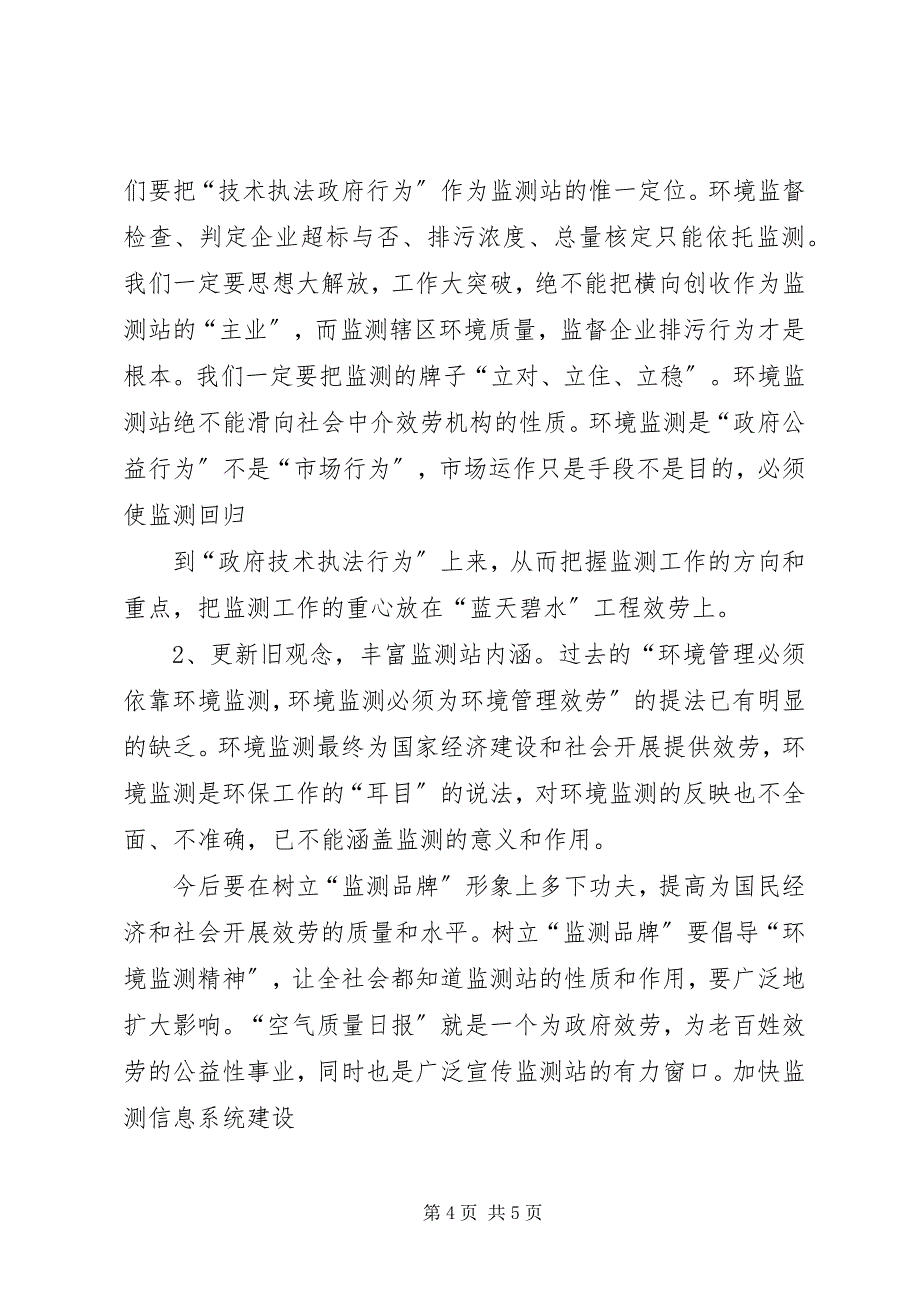 们要把“技术执法政府行为〞作为监测站的惟一定位。环境监督
检查、判定企业超标与否、排污浓度、总量核定只能依托监测。
我们一定要思想大解放，工作大突破，绝不能把横向创收作为监
测站的“主业〞，而监测辖区环境质量，监督企业排污行为才是
根本。我们一定要把监测的牌子“立对、立住、立稳〞。环境监
测站绝不能滑向社会中介效劳机构的性质。环境监测是“政府公
益行为〞不是“市场行为〞，市场运作只是手段不是目的，必须
使监测回归
到“政府技术执法行为〞上来，从而把握监测工作的方向和
重点，把监测工作的重心放在“蓝天碧水〞工程效劳上。
2、更新旧观念，丰富监测站内涵。过去的“环境管理必须
依靠环境监测，环境监测必须为环境管理效劳〞的提法已有明显
的缺乏。环境监测最终为国家经济建设和社会开展提供效劳，环
境监测是环保工作的“耳目〞的说法，对环境监测的反映也不全
面、不准确，已不能涵盖监测的意义和作用。
今后要在树立“监测品牌〞形象上多下功夫，提高为国民经
济和社会开展效劳的质量和水平。树立“监测品牌〞要倡导“环
境监测精神〞，让全社会都知道监测站的性质和作用，要广泛地
扩大影响。“空气质量日报〞就是一个为政府效劳，为老百姓效
劳的公益性事业，同时也是广泛宣传监测站的有力窗口。加快监
测信息系统建设
第 4 页 共 5 页